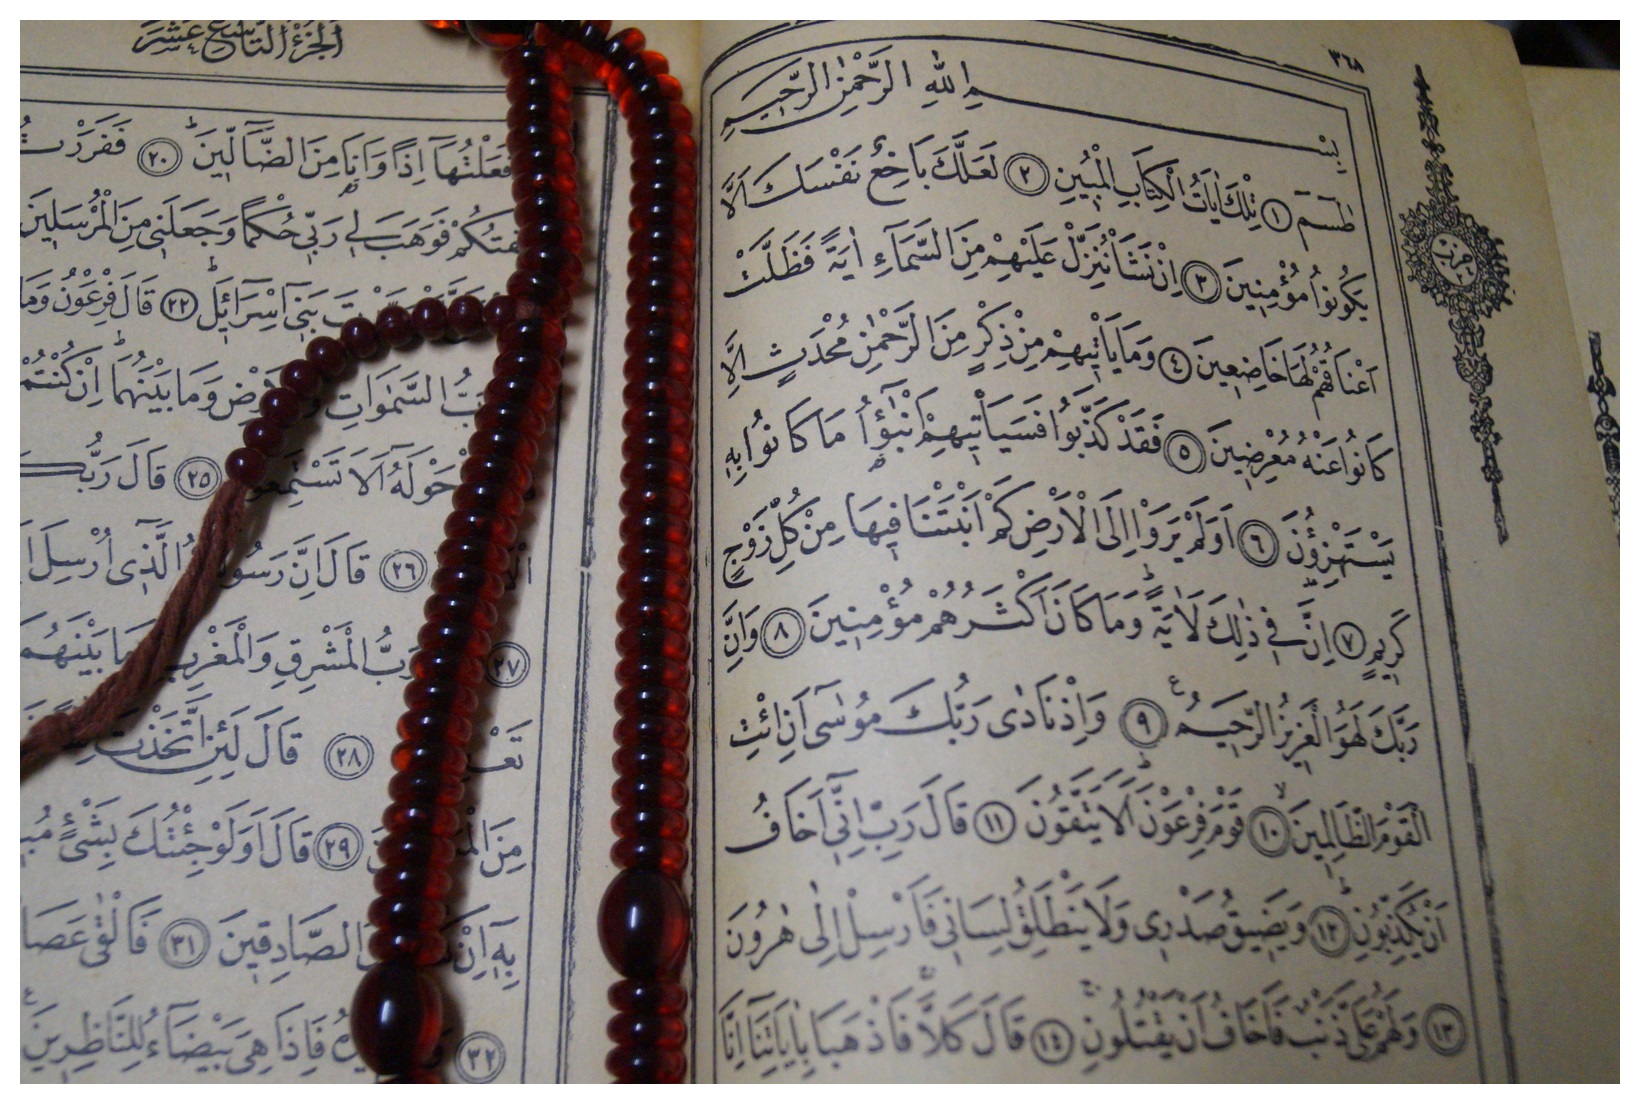 ٣٦٨
بِسْمِ اللّٰهِ الرَّحْمٰنِ الرَّحِيمِ
طٰسٓمٓ ١ تِلْكَ اٰيَاتُ الْكِتَابِ الْمُبِينِ ٢ لَعَلَّكَ بَاخِعٌ نَفْسَكَ اَلَّا
يَكُونُوا مُؤْمِنِينَ ٣ اِنْ نَشَأْ نُنَزِّلْ عَلَيْهِمْ مِنَ السَّمَٓاءِ اٰيَةً فَظَلَّتْ
اَعْنَاقُهُمْ لَهَا خَاضِعِينَ ٤ وَمَا يَأْتِيهِمْ مِنْ ذِكْرٍ مِنَ الرَّحْمٰنِ مُحْدَثٍ اِلَّا
كَانُوا عَنْهُ مُعْرِضِينَ ٥ فَقَدْ كَذَّبُوا فَسَيَأْتِيهِمْ اَنْبٰٓؤُا مَا كَانُوا بِهِ
يَسْتَهْزِؤُنَ ٦ اَوَلَمْ يَرَوْا اِلَى الْاَرْضِ كَمْ اَنْبَتْنَا فِيهَا مِنْ كُلِّ زَوْجٍ
كَرِيمٍ ٧ اِنَّ فِي ذٰلِكَ لَاٰيَةً وَمَا كَانَ اَكْثَرُهُمْ مُؤْمِنِينَ ٨ وَاِنَّ
رَبَّكَ لَهُوَ الْعَزِيزُ الرَّحِيمُ ٩ وَاِذْ نَادٰى رَبُّكَ مُوسٰٓى اَنِ ائْتِ
الْقَوْمَ الظَّالِمِينَ ١٠ قَوْمَ فِرْعَوْنَ اَلَا يَتَّقُونَ ١١ قَالَ رَبِّ اِنِّٓي اَخَافُ
اَنْ يُكَذِّبُونِ ١٢ وَيَضِيقُ صَدْرِي وَلَا يَنْطَلِقُ لِسَانِي فَاَرْسِلْ اِلٰى هٰرُونَ
١٣ وَلَهُمْ عَلَيَّ ذَنْبٌ فَاَخَافُ اَنْ يَقْتُلُونِ ١٤ قَالَ كَلَّا فَاذْهَبَا بِاٰيَاتِنَٓا اِنَّا
حزب
الجُزْءُ التَّاسِعَ عَشَرَ
فَعَلْتُهَٓا اِذًا وَاَنَا مِنَ الضَّٓالِّينَ ٢٠ فَفَرَرْتُ
خِفْتُكُمْ فَوَهَبَ لِي رَبِّي حُكْمًا وَجَعَلَنِي مِنَ الْمُرْسَلِينَ
بَنِٓي اِسْرَٓائِلَ ٢٢ قَالَ فِرْعَوْنُ وَمَا
رَبُّ السَّمٰوَاتِ وَالْاَرْضِ وَمَا بَيْنَهُمَا اِنْ كُنْتُمْ
حَوْلَهُٓ اَلَا تَسْتَمِعُونَ ٢٥ قَالَ رَبُّكُ
٢٦ قَالَ اِنَّ رَسُولَكُمُ الَّذِٓي اُرْسِلَ
٢٧ رَبُّ الْمَشْرِقِ وَالْمَغْرِبِ وَمَا بَيْنَهُمَا
تَعْ ٢٨ قَالَ لَئِنِ اتَّخَذْتَ
مِنَ الْمَ ٢٩ قَالَ اَوَلَوْ جِئْتُكَ بِشَيْءٍ
بِهِٓ اِنْ الصَّادِقِينَ ٣١ فَاَلْقٰى عَصَا
٣٢ فَاِذَا هِيَ بَيْضَٓاءُ لِلنَّاظِرِينَ